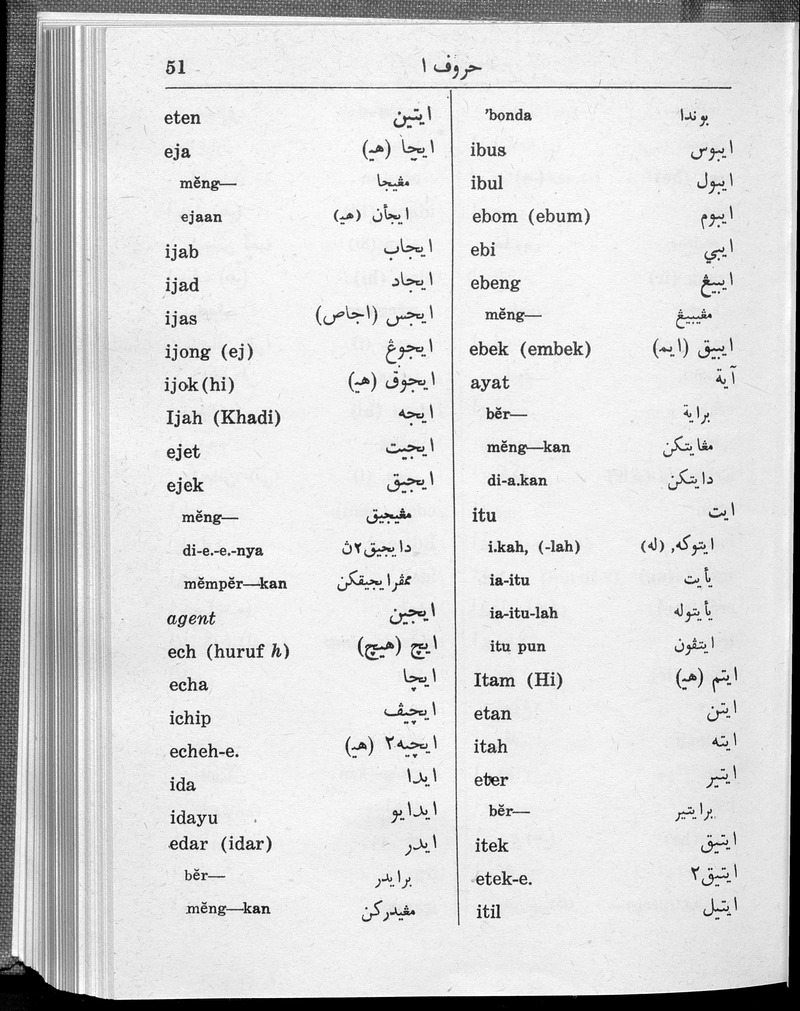 51 حروف ا
eten ايتين
eja ايجا (هي)
mĕng— مڠيجا
ejaan ايجأن (هي)
ijab ايجاب
ijad ايجاد
ijas ايجس (اجاص)
ijong (ej) ايجوڠ
ijok(hi) ايجوق (هي)
Ijah (Khadi) ايجه
ejet ايجيت
ejek ايجيق
mĕng— مڠيجيق
di-e.-e.-nya دايجيق٢ن
mĕmpĕr—kan ممڤرايجيقكن
agent ايجين
ech (huruf h) ايچ (هيچ)
echa ايچا
ichip ايچيڤ
echeh-e. ايچيه٢ (هي)
ida ايدا
idayu ايدايو
edar (idar) ايدر
bĕr— برايدر
mĕng—kan مڠيدركن
’bonda بوندا
ibus ايبوس
ibul ايبول
ebom (ebum) ايبوم
ebi ايبي
ebeng ايبيڠ
mĕng— مڠيبيڠ
ebek (embek) ايبيق (ايم)
ayat آية
bĕr— براية
mĕng—kan مڠايتكن
di-a.kan دايتكن
itu ايت
i.kah, (-lah) ايتوكه, (له)
ia-itu يأيت
ia-itu-lah يأيتوله
itu pun ايتڤون
Itam (Hi) ايتم (هي)
etan ايتن
itah ايته
eter ايتير
bĕr— برايتير
itek ايتيق
etek-e. ايتيق٢
itil ايتيل